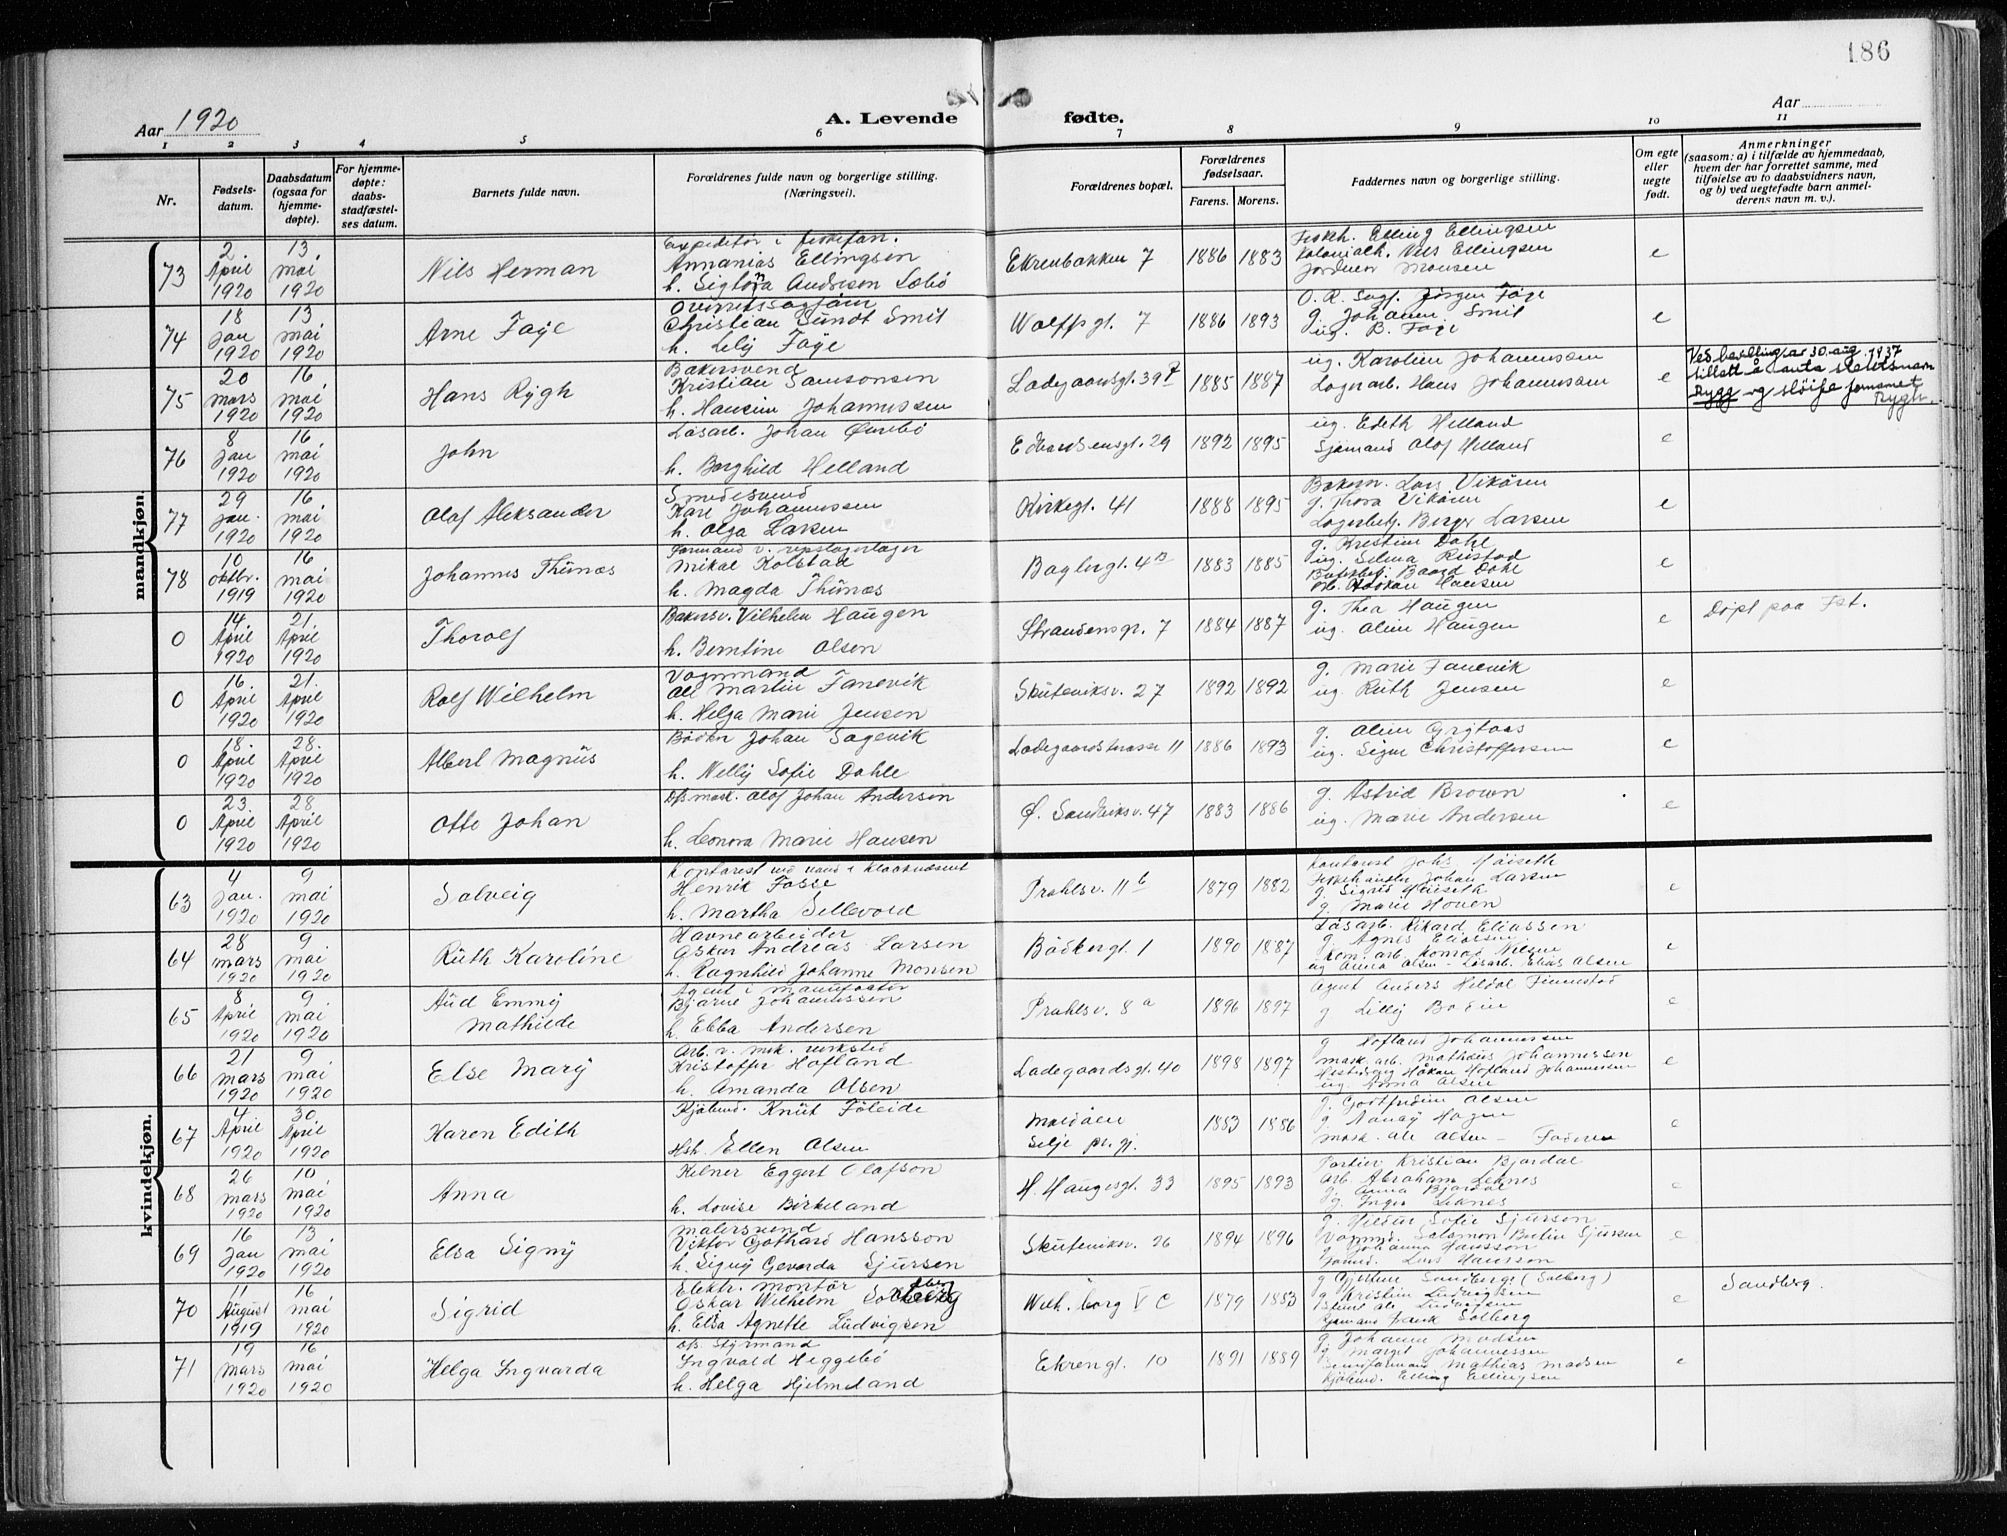 186
Aar 1920
A. Levende fødte.
Aar
1 2 3 4 5 6 7 8 9 10 11
Nr.
Fødsels-datum.
Daabsdatum (ogsaa for hjemme-døpte).
For hjemme-døpte: daabs-stadfæstel-ses datum.
Barnets fulde navn.
Forældrenes fulde navn og borgerlige stilling. (Næringsvei).
Forældrenes bopæl.
Forældrenes fødselsaar.
Farens. Morens.
Faddernes navn og borgerlige stilling.
Om egte eller uegte født.
Anmerkninger
(saasom: a) i tilfælde av hjemmedaab,
hvem der har forrettet samme, med
tilføielse av to daabsvidners navn,
og b) ved uegtefødte barn anmel-
derens navn m. v.).
mandkjøn.
73 2 April 1920 13 mai 1920 Nils Herman
Annanias Ellingsen
h. Andresen Sæbö
Ekrenbakken 7 1886 1883
Elling Ellingsen
Kolonialh. Nils Ellingsen
Monsen
e
74 18 Jan 1920 13 mai 1920 Arne Faye
Overretssagförer
Christian Sundt Smit
h. Lely Faye
Wolffsgt. 7 1886 1893
O. R. Sagf. Jörgen Faye
g. Johanne Smit
ug. B. Faye
e
75 20 mars 1920 16 mai 1920 Hans Rygh
Bakersvend
Kristian Samsonsen
h. Hansine Johannessen
Ladegaardsgt. 39 1885 1887
ug. Karoline Johannessen
Lagerarb. Hans Johannessen
e
Ved bevilling av 30 aug. 1937
tillatt å anta slektsnavn
Rygg og sløife fornavnet
Rygh.
76 8 Jan 1920 16 mai 1920 John
Løsarb. Johan Övrebö
h. Borghild Helland
Edvardsensgt. 29 1892 1895
ug. Edith Helland
Sjömand Olaf Helland
e
77 29 Jan. 1920 16 mai 1920 Olaf Aleksander
Smedesvend
Karl Johannessen
h. Olga Larsen
Kirkegt. 41 1888 1895
Lars Vikören
g. Thora Vikören
Lagerbetj. Berger Larsen
e
78 10 oktbr. 1919 16 mai 1920 Johannes Thünæs
Formand v. repslagerlager
Mikal Kolstad
h. Magda Thünæs
Baglergt. 4B 1883 1885
g. Kristine Dahl
ug. Selma Rustad
Baard Dahl
Haakon Hansen
e
0 14 April 1920 21. April 1920 Thorolf
Bakersv. Vilhelm Haugen
h. Berntine Olsen
Strandensgt. 7 1884 1887
g. Thea Haugen
ug. Aline Haugen
e
Döpt paa Fst.
0 16. April 1920 21. April 1920 Rolf Wilhelm
Vognmand
Ole Martin Fanevik
h. Helga Marie Jensen
Skuteviksv. 27 1892 1892
g. Marie Fanevik
ug. Ruth Jensen
e
0 18. April 1920 28. April 1920 Albert Magnus
Johan Sagevik
h. Nelly Sofie Dahle
Ladegaardstrasse 11 1886 1893
g. Aline
ug. Signe Christoffersen
e
0 23. April 1920 28 April 1920 Otto Johan
Olaf Johan Andersen
h. Leonora Marie Hansen
Ø. Sandviksv. 47 1883 1886
g. Astrid Brown
ug. Marie Andersen
e
kvindekjøn.
63 4 Jan. 1920 9 mai 1920 Solveig
Henrik Fosse
h. Martha Sellevold
Prahlsv. 11b 1879 1882
Kontorist Johs. Höiseth
Johan Larsen
g. Sigrid Höiseth
g. Marie Hoven
e
64 28 mars 1920 9. mai 1920 Ruth Karoline
Havnearbeider
Oskar Andreas Larsen
h. Ragnhild Johanne Monsen
Bödkergt. 1 1890 1887
Løsarb. Rikard Eliassen
g. Agnes Eliassen
Kom. arb. Konrad Nilsen
ug Anna Olsen - Løsarb. Elias Olsen
e
65 8 April 1920 9. mai 1920 Aud Emmy Mathilde
Agent i manufaktur
Bjarne Johannessen
h. Ebba Andersen
Prahlsv. 8a 1896 1897
Agent Anders Heldal Finnestad
g Lilly Bodin
e
66 21 mars 1920 9 mai 1920 Else Mary
Arb. v. mek. verksted
Kristoffer Hofland
h. Amanda Olsen
Ladegaardsgt. 40 1898 1897
g Hofland Johannessen
mask. arb. Mathæus Johannessen
Håkon Hofland Johannessen
ug. Anna Olsen
e
67 4 April 1920 30 April 1920 Karen Edith
Kjöbmd. Knut Föleide
Hsh. Ellen Olsen
Moldöen Selje pr.gj. 1883 1886
g. Godtfredine Olsen
g Nanny Hagen
mask. Ole Olsen - Faderen
e
68 26 mars 1920 10 mai 1920 Anna
Kelner Eggert Olafson
h. Lovise Birkeland
H. Haugesgt. 33 1895 1893
Portier Kristian Bjordal
Arb. Abraham Leknes
g. Anna Bjordal
g. Inger Leknes
e
69 16 Jan 1920 13 mai 1920 Elsa Signy
Malersvend
Viktor Gothard Hansson
h. Signy Gevarda Sjursen
Skuteviksv. 26 1894 1896
g. Hilda Sofie Sjursen
Vognmd. Salomon Sjursen
g Johanna Hansson
Lars Hansson
e
70 11 August 1919 16 mai 1920 Sigrid
Elektr. montör
Oskar Wilhelm Solberg
h. Elsa Agnette Ludvigsen
Wilh. borg V C 1879 1883
g Gjertine Sandberg (Solberg)
g. Kristine Ludvigsen
Ole Ludvigsen
Frank Solberg
e
Sandberg.
71 19 mars 1920 16 mai 1920 Helga Ingvarda
Styrmand
Ingvald Heggebö
h. Helga Hjelmeland
Ekrengt. 10 1891 1889
g. Johanne Madsen
g Margit Johannessen
Mathias Madsen
Kjöbmd. Elling Ellingsen
e